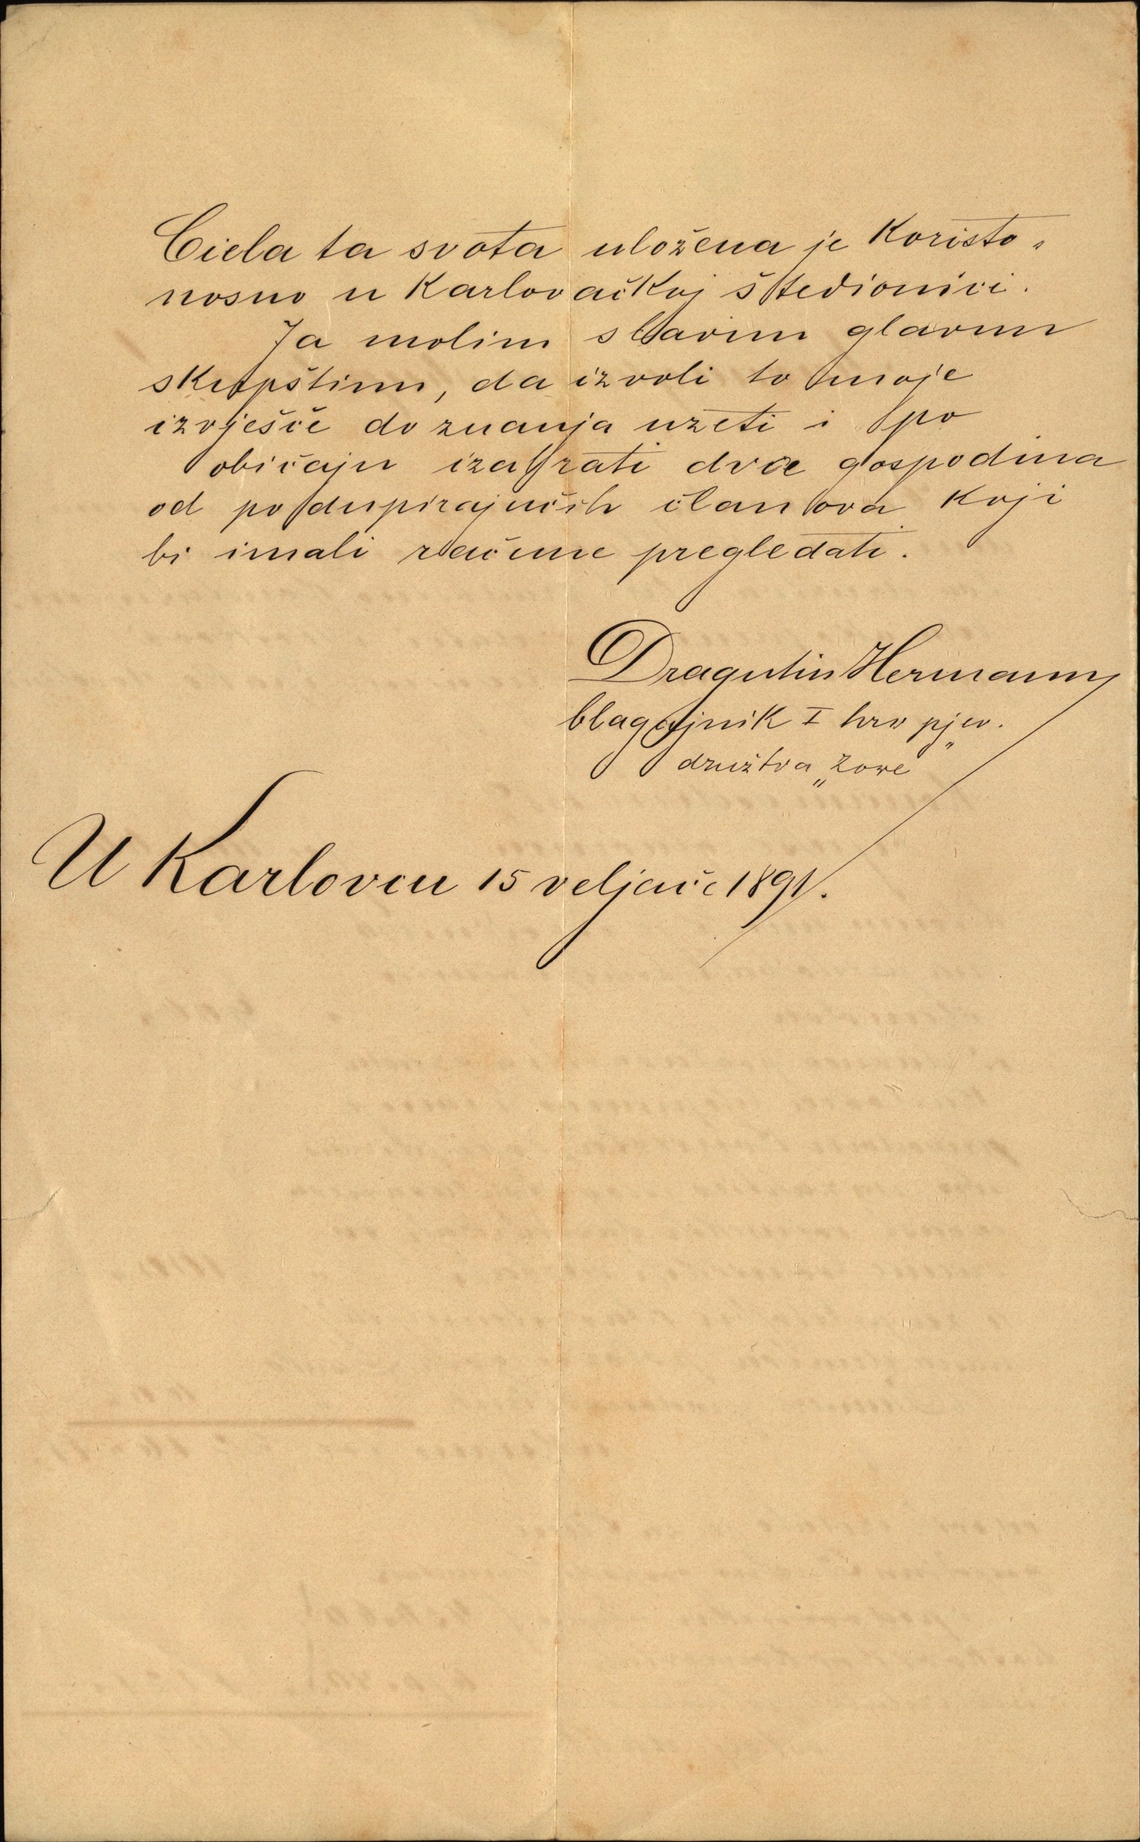 Ciela ta svota uložena je koristo-
nosno u Karlovačkoj štedionici.
Ja molim slavnu glavnu
skupštinu, da izvoli to moje
izvješće do znanja uzeti i po
običaju izabrati dva gospodina
od podupirajućih članova koji
bi imali račune pregledati.
Dragutin Hermann
blagajnik I hrv pjev.
družtva „Zore"
U Karlovcu 15 veljače 1891.